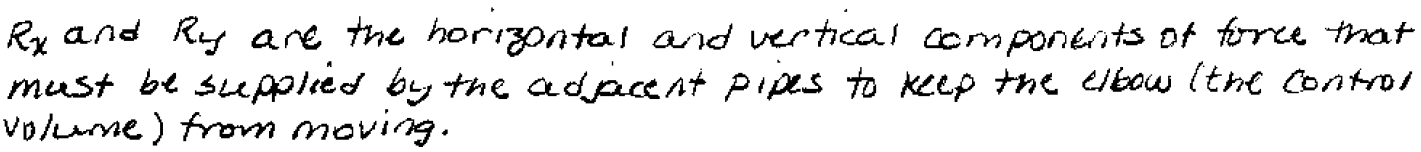 Rx and Ry are the horizontal and vertical components of force that
must be supplied by the adjacent pipes to keep the elbow (the control
volume) from moving.